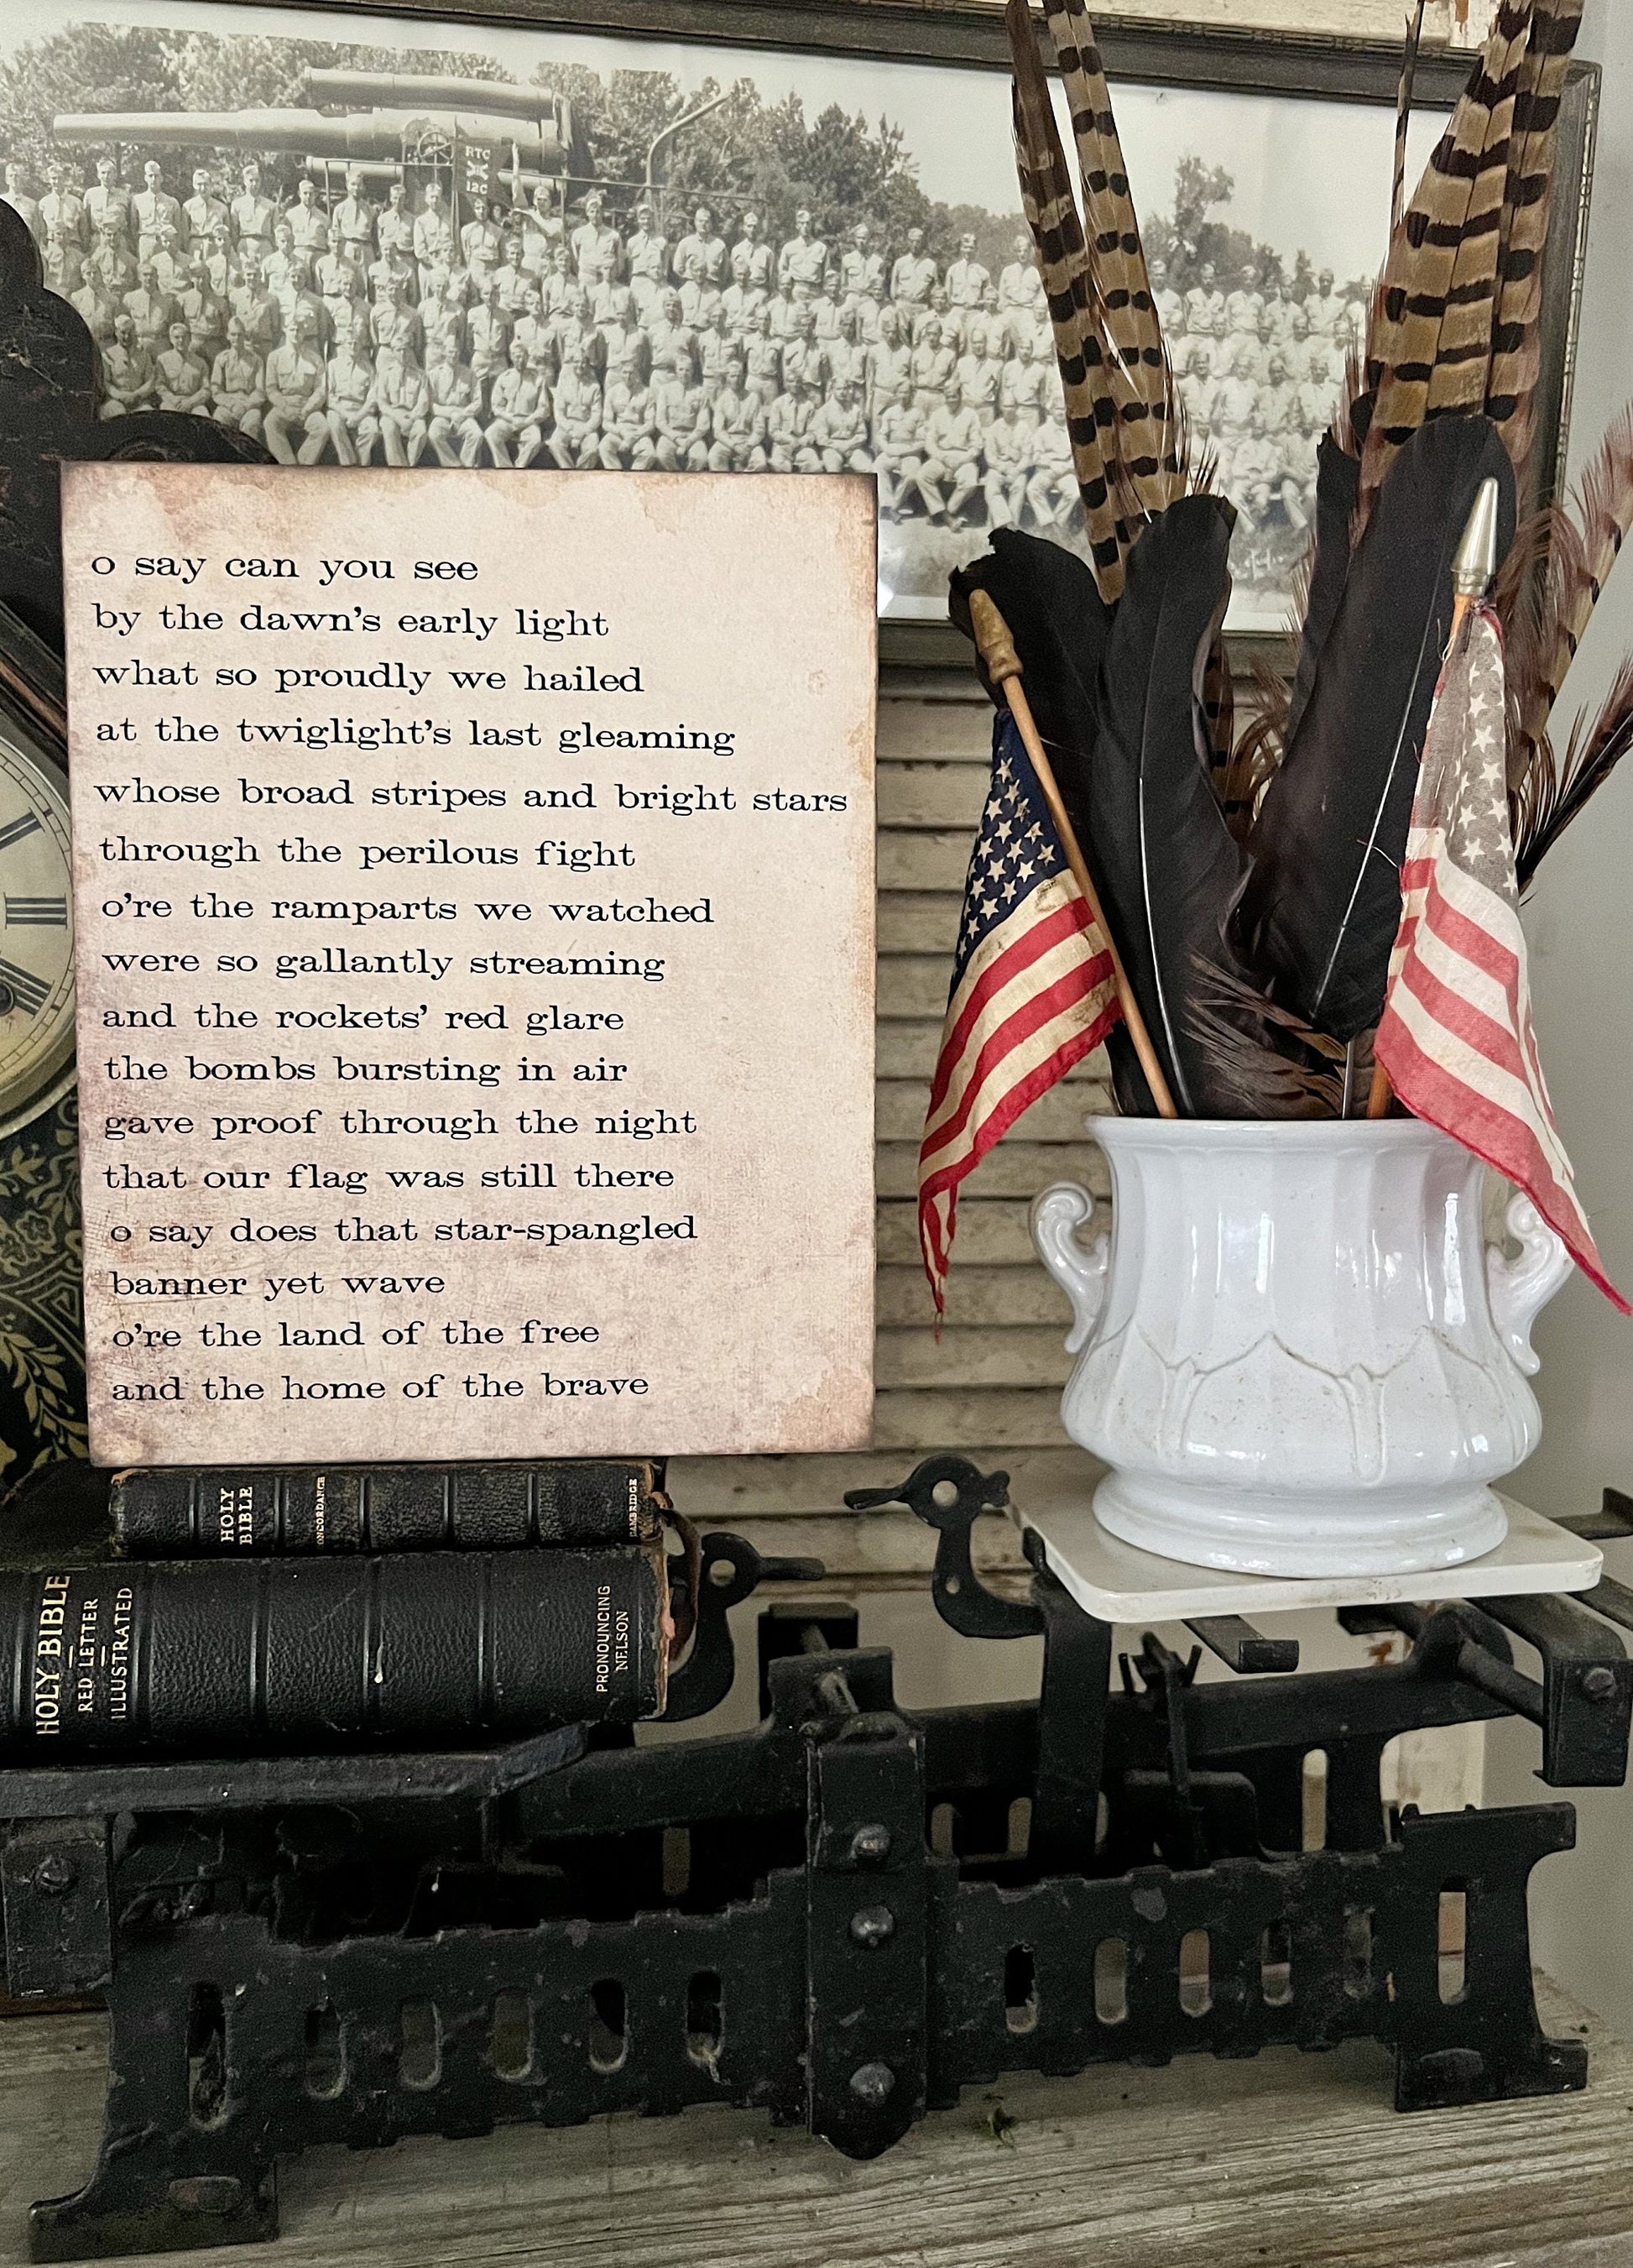 RTC
12C
o say can you see
by the dawn's early light
what so proudly we hailed
at the twiglight's last gleaming
whose broad stripes and bright stars
through the perilous fight
o're the ramparts we watched
were so gallantly streaming
and the rockets' red glare
the bombs bursting in air
gave proof through the night
that our flag was still there
o say does that star-spangled
banner yet wave
o're the land of the free
and the home of the brave
HOLY
BIBLE
CONCORDANCE
CAMBRIDGE
HOLY BIBLE
RED LETTER
ILLUSTRATED
PRONOUNCING
NELSON
III